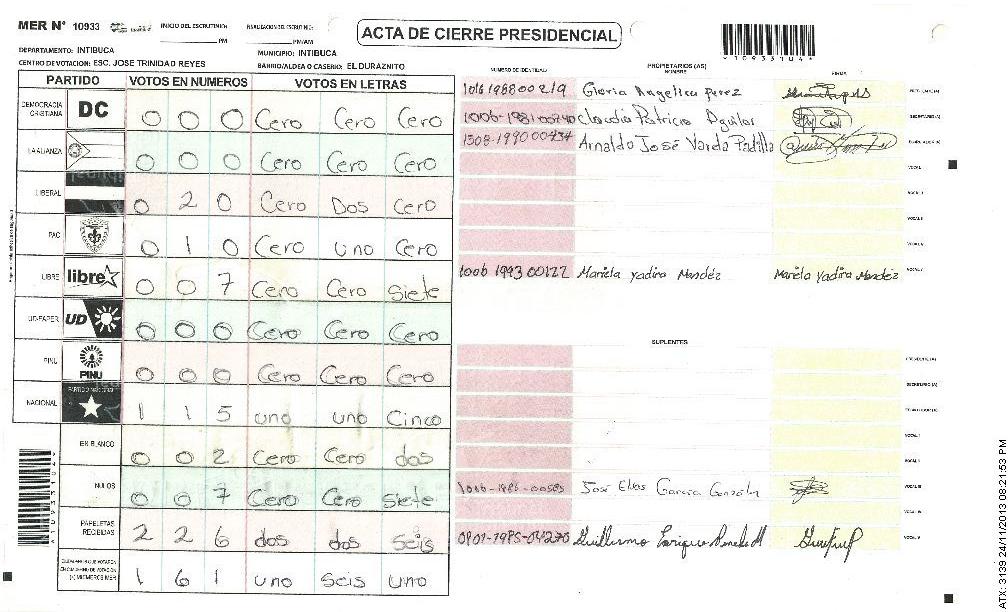 MER N° 10933
INICIO DEL ESCRUTINIO:
PM
FINALIZACION DEL ESCRUTINIO:
PM/AM
ACTA DE CIERRE PRESIDENCIAL
*10933104*
DEPARTAMENTO: INTIBUCA
MUNICIPIO: INTIBUCA
CENTRO DE VOTACION: ESC. JOSE TRINIDAD REYES
BARRIO/ALDEA O CASERIO: EL DURAZNITO
PARTIDO VOTOS EN NUMEROS VOTOS EN LETRAS
DEMOCRACIA CRISTIANA DC 0 0 0 Cero Cero Cero
LA ALIANZA 0 0 0 Cero Cero Cero
LIBERAL 0 2 0 Cero Dos Cero
PAC 0 1 0 Cero uno Cero
LIBRE libre 0 0 7 Cero Cero Siete
UD-FAPER UD 0 0 0 Cero Cero Cero
PINU PINU 0 0 0 Cero Cero Cero
NACIONAL 1 1 5 uno uno Cinco
EN BLANCO 0 0 2 Cero Cero dos
NULOS 0 0 7 Cero Cero Siete
PAPELETAS RECIBIDAS 2 2 6 dos dos Seis
CIUDADANOS QUE VOTARON EN CUADERNO DE VOTACION (+) MIEMBROS MER 1 6 1 uno Seis uno
NUMERO DE IDENTIDAD
PROPIETARIOS (AS)
NOMBRE
FIRMA
Gloria Angelica perez PRESIDENTE(A)
1006-1981-00240 Claudia Patricia Aguilar SECRETARIO(A)
1508-1990 00434 Arnaldo José Varda Padilla ESCRUTADOR(A)
VOCAL I
VOCAL II
VOCAL III
VOCAL IV
1006 1993 00122 Mariela Yadira Mendéz Mariela Yadira Mendez VOCAL V
SUPLENTES
PRESIDENTE(A)
SECRETARIO(A)
ESCRUTADOR(A)
VOCAL I
VOCAL II
José Elias Garcia VOCAL III
VOCAL IV
Guillermo Enrique VOCAL V
ATX: 3139 24/11/2013 08:21:53 PM